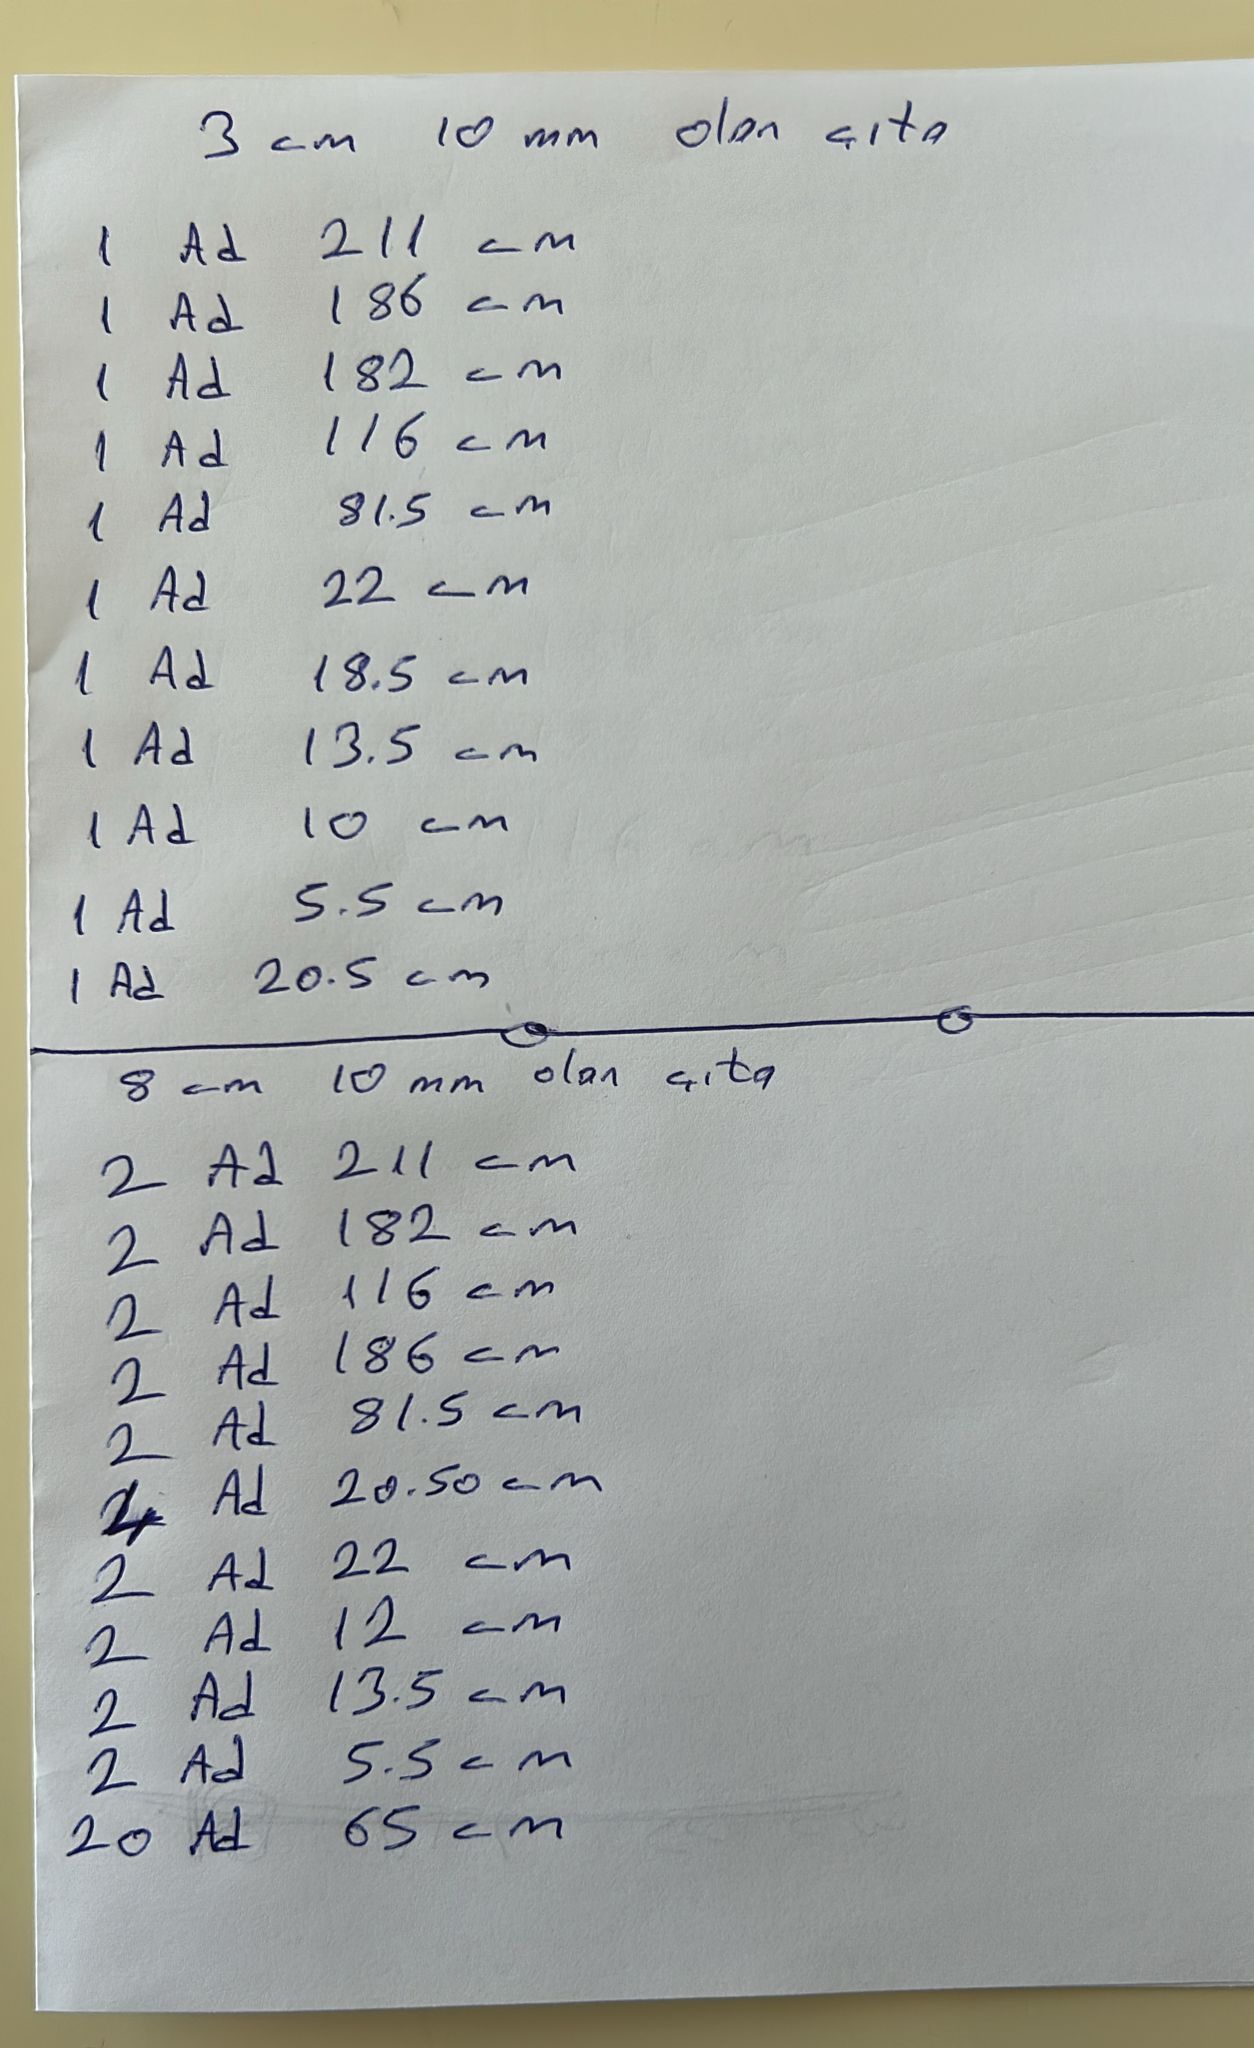 3 cm 10 mm olan çıta
1 Ad 211 cm
1 Ad 186 cm
1 Ad 182 cm
1 Ad 116 cm
1 Ad 81.5 cm
1 Ad 22 cm
1 Ad 18.5 cm
1 Ad 13.5 cm
1 Ad 10 cm
1 Ad 5.5 cm
1 Ad 20.5 cm
8 cm 10 mm olan çıta
2 Ad 211 cm
2 Ad 182 cm
2 Ad 116 cm
2 Ad 186 cm
2 Ad 81.5 cm
Ad 20.50 cm
2 Ad 22 cm
2 Ad 12 cm
2 Ad 13.5 cm
2 Ad 5.5 cm
20 Ad 65 cm